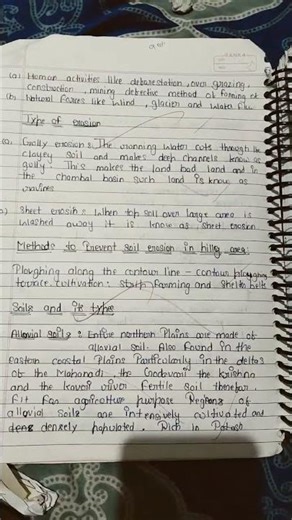 (a) Human activities like deforestation, over grazing,
construction, mining defective method of farming et
(b) Natural forces like wind, glacier and water flw
Type of erosion
(a) Gully erosion: The running water cuts through the
clayey soil and makes deep channels know as
gully. This makes the land bad land and in
the chambal basin such land is know as
ravines
) Sheet erosion: When top soil over large area is
washed away it is know as sheet erosion
Methods to Prevent soil erosion in hilly area:
Ploughing along the contour line - contour ploughing
terrace cultivation: strip farming and shelter belts
Soils and its type
Alluvial soils: Entire northern Plains are made of
alluvial soil. Also found in the
eastern coastal Plains Particularly in the deltas
of the Mahanadi, the Godavari the krishna
and the kaveri river fertile soil therefor.
fit for agriculture purpose Regions of
alluvial soils are intensively cultivated and
dens densely populated. Rich in Potash